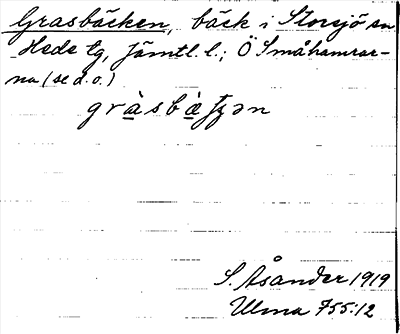 Grasbäcken, bäck i Storsjö sn
Hede tg, Jämtl. l.; Ö Småhamrar-
na (se d. o.)
gràsbæ̀ʃʒən
S. Åsander 1919
Ulma 755:12